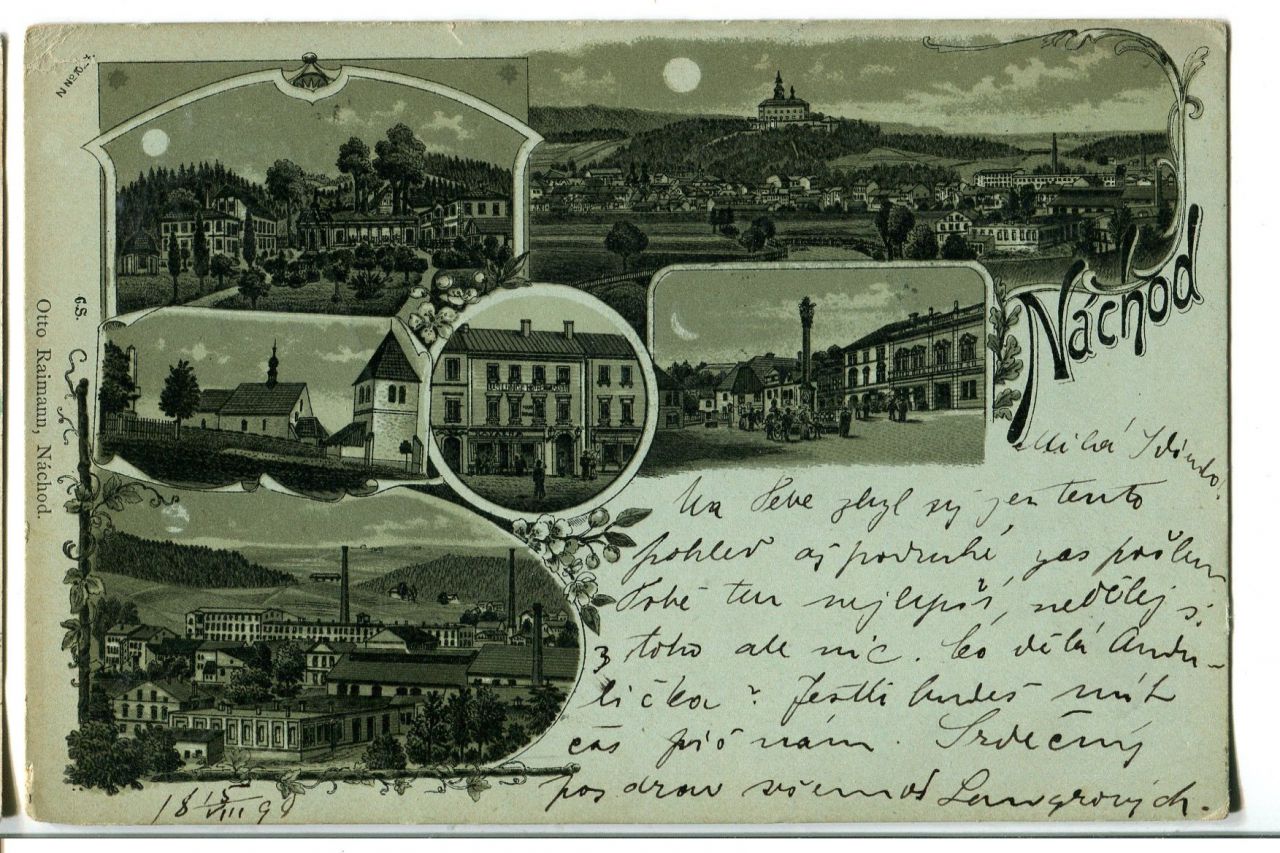 Náchod
Otto Raimann, Náchod.
G.S.
Milá
Na Tebe zbyl jen tento
pohled až podruhé, zas pošlem
Tobě ten nejlepší, nedělej si
z toho ale nic. Co dělá Andu-
lička? Jestli budeš mít
čas piš nám. Srdečný
pozdrav všem od Langrových.
18 15/VIII 99